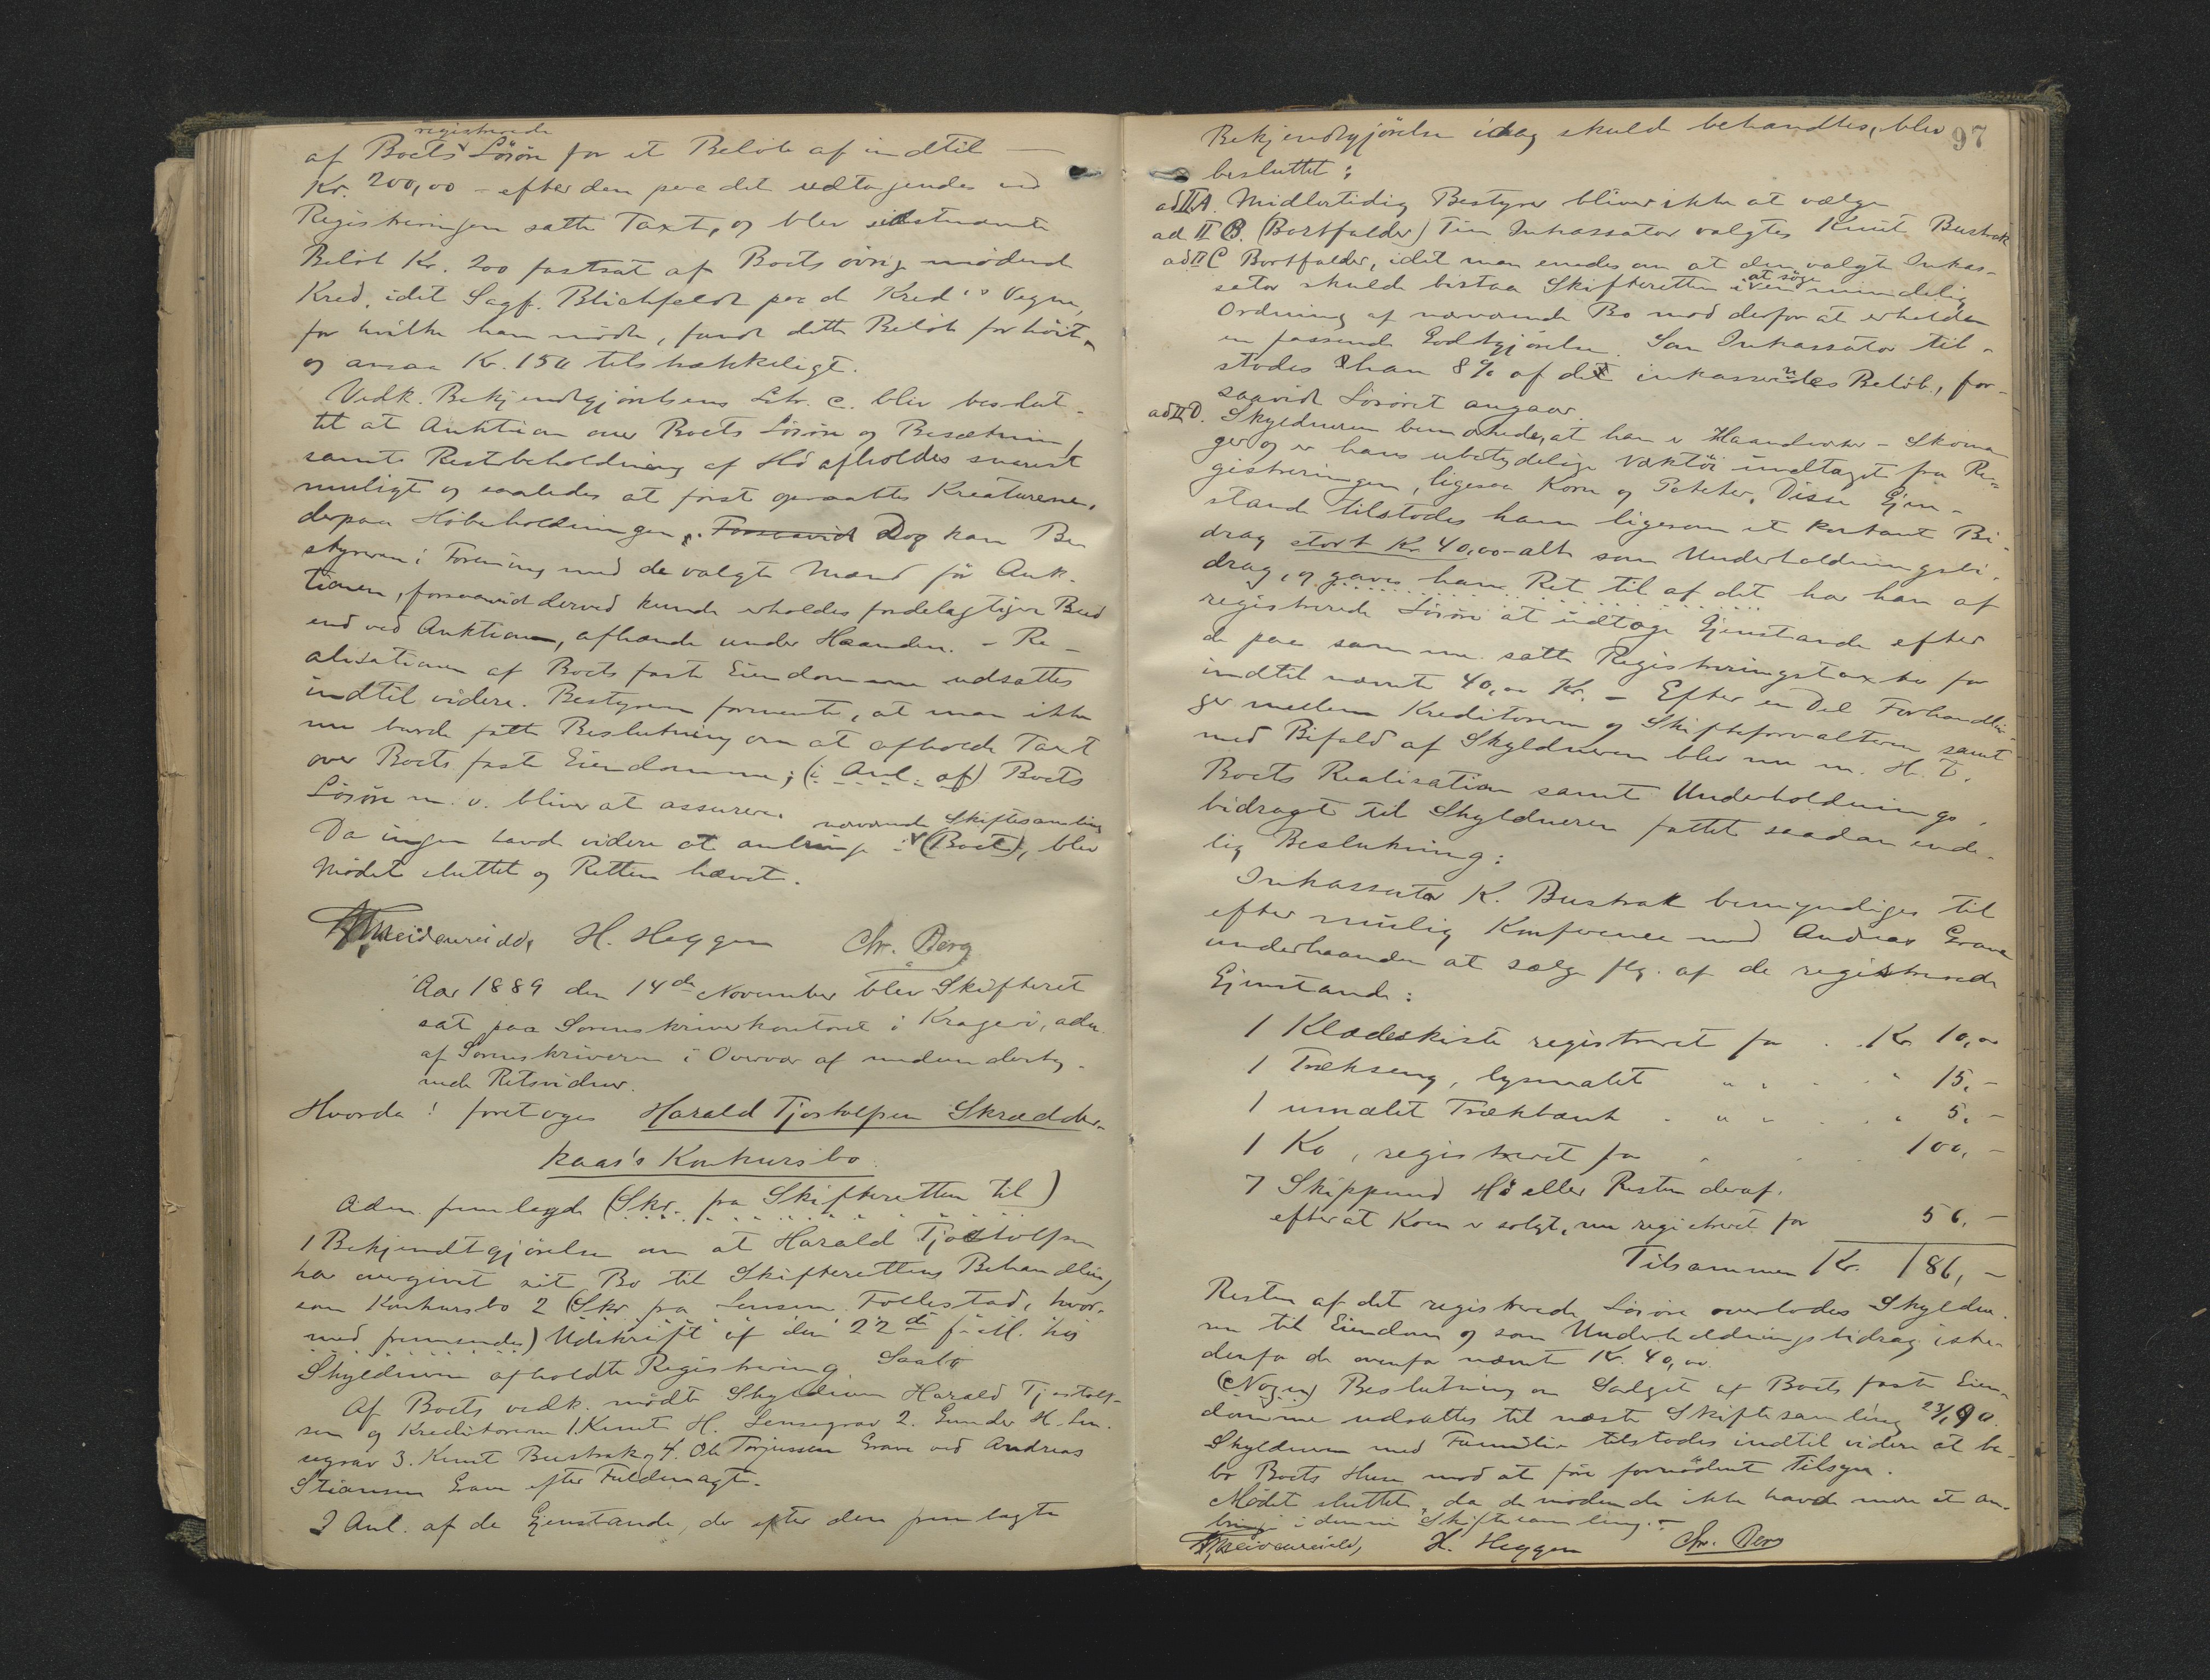 registrerede
af Boets Lösöre for et Belöb af indtil —
Kr. 200,00 – efter den paa det udtagendes ved
Registreringen satte Taxt, og blev sidstnævnte
Belöb Kr. 200 fastsat af Boets övrige mödende
Kred. idet Sagf. Blichfeldt paa de Kred.s Vegne,
for hvilke han mödte, fandt dette Belöb for höit,
og ansaa Kr. 150 tilstrækkeligt.
Vedk. Bekjendtgjörelsens Litr. c. blev beslut-
tet at Auktion over Boets Lösöre og Besætning,
samt Restbeholdning af Hö afholdes snarest
muligt og saaledes at först opraabtes Kreaturene,
derpaa Höbeholdningen. Forsaavidt Dog kan Be-
styreren i Forening med de valgte Mænd för Auk-
tionen, forsaavidt derved kunde erholdes fordelagtigere Bud
end ved Auktion, afhænde under Haanden. – Re-
alisationen af Boets faste Eiendomme udsattes
indtil videre. Bestyreren formente, at man ikke
nu burde fatte Beslutning om at afholde Taxt
over Boets faste Eiendomme; (i Anl. af) Boets
Lösöre m. v. bliver at assurere.
nærværende Skiftesamling
Da ingen havde videre at anbringe i (Boet), blev
Mödet sluttet og Retten hævet.
H. Heggen Chr. Berg
Aar 1889 den 14de November blev Skifteret
sat paa Sorenskriverkontoret i Kragerö, adm.
af Sorenskriveren i Overvær af nedenunderteg-
nede Retsvidner.
Hvorda! foretoges Harald Tjostolfsen Skrædder-
kaas's Konkursbo.
Adm. fremlagde (Skr. fra Skifteretten til)
1 Bekjendtgjörelse om at Harald Tjostolfsen
har overgivet sit Bo til Skifterettens Behandling
som Konkursbo 2 (Skr. fra Lensm. Follestad, hvor-
med fremsendes) Udskrift af den 22de f. M. hos
Skyldneren afholdte Registrering Saal.
Af Boets vedk. mödte Skyldneren Harald Tjostolf-
sen og Kreditorerne 1. Knut H. Lensegrav 2. Gunder H. Len-
segrav 3. Knut Bustrak og 4. Ole Torjussen Grave ved Andreas
Stiansen Grave efter Fuldmagt.
I Anl. af de Gjenstande, der efter den fremlagte
97
Bekjendtgjörelse idag skulde behandles, blev
besluttet:
ad II A. Midlertidig Bestyrer bliver ikke at vælge
ad II B. (Bortfalder) Til Inkassator valgtes Knut Bustrak
ad II C Bortfalder, idet man enedes om at den valgte Inkas-
at söge
sator skulde bistaa Skifteretten i en mindelig
Ordning af nærværende Bo mod derfor at erholde
en passende Godtgjörelse. Som Inkassator til-
stodes han 8 % af det inkasserendes Belöb, for-
saavidt Lösöret angaar.
ad II D. Skyldneren bemærkede, at han er Haandverker – Skoma-
ger og er hans ubetydelige Værktöi undtaget fra Re-
gistreringen, ligesaa Korn og Poteter. Disse Gjen-
stande tilstodes ham ligesom et kontant Bi-
drag stort Kr. 40,00 – alt som Underholdningsbi-
drag, og gaves ham Ret til af det har han af
registrerede Lösöre at udtage Gjenstande efter
de paa samme satte Registreringstaxter for
indtil nævnte 40,00 Kr. – Efter en Del Forhandlin-
ger mellem Kreditorerne og Skifteforvalteren samt
med Bifald af Skyldneren blev nu m. H. t.
Boets Realisation samt Underholdnings-
bidraget til Skyldneren fattet saadan ende-
lig Beslutning:
Inkassator K. Bustrak bemyndiges til
efter mulig Konference med Andreas Grave
underhaanden at sælge flg. af de registrerede
Gjenstande:
1 Klædeskiste registreret for . . Kr. 10,00
1 Trækseng, lysmalet " " . . " 15,–
1 umalet Trækbænk . " " . . " 5,–
1 Ko, registreret for . . . 100,–
7 Skippund Hö eller Resten deraf.
efterat Koen er solgt, nu registreret for 56,–
Tilsammen Kr. 186,–
Resten af det registrerede Lösöre overlodes Skyldne-
ren til Eiendom og som Underholdningsbidrag iste-
denfor de ovenfor nævnte Kr. 40,00.
(Nogen) Beslutning om Salget af Boets faste Eien-
domme udsattes til næste Skiftesamling 23/1 90.
Skyldneren med Familie tilstodes indtil videre at be-
bo Boets Huse mod at före fornödent Tilsyn.
Mödet sluttet, da de mödende ikke havde mere at an-
bringe i denne Skiftesamling. –
H. Heggen Chr. Berg